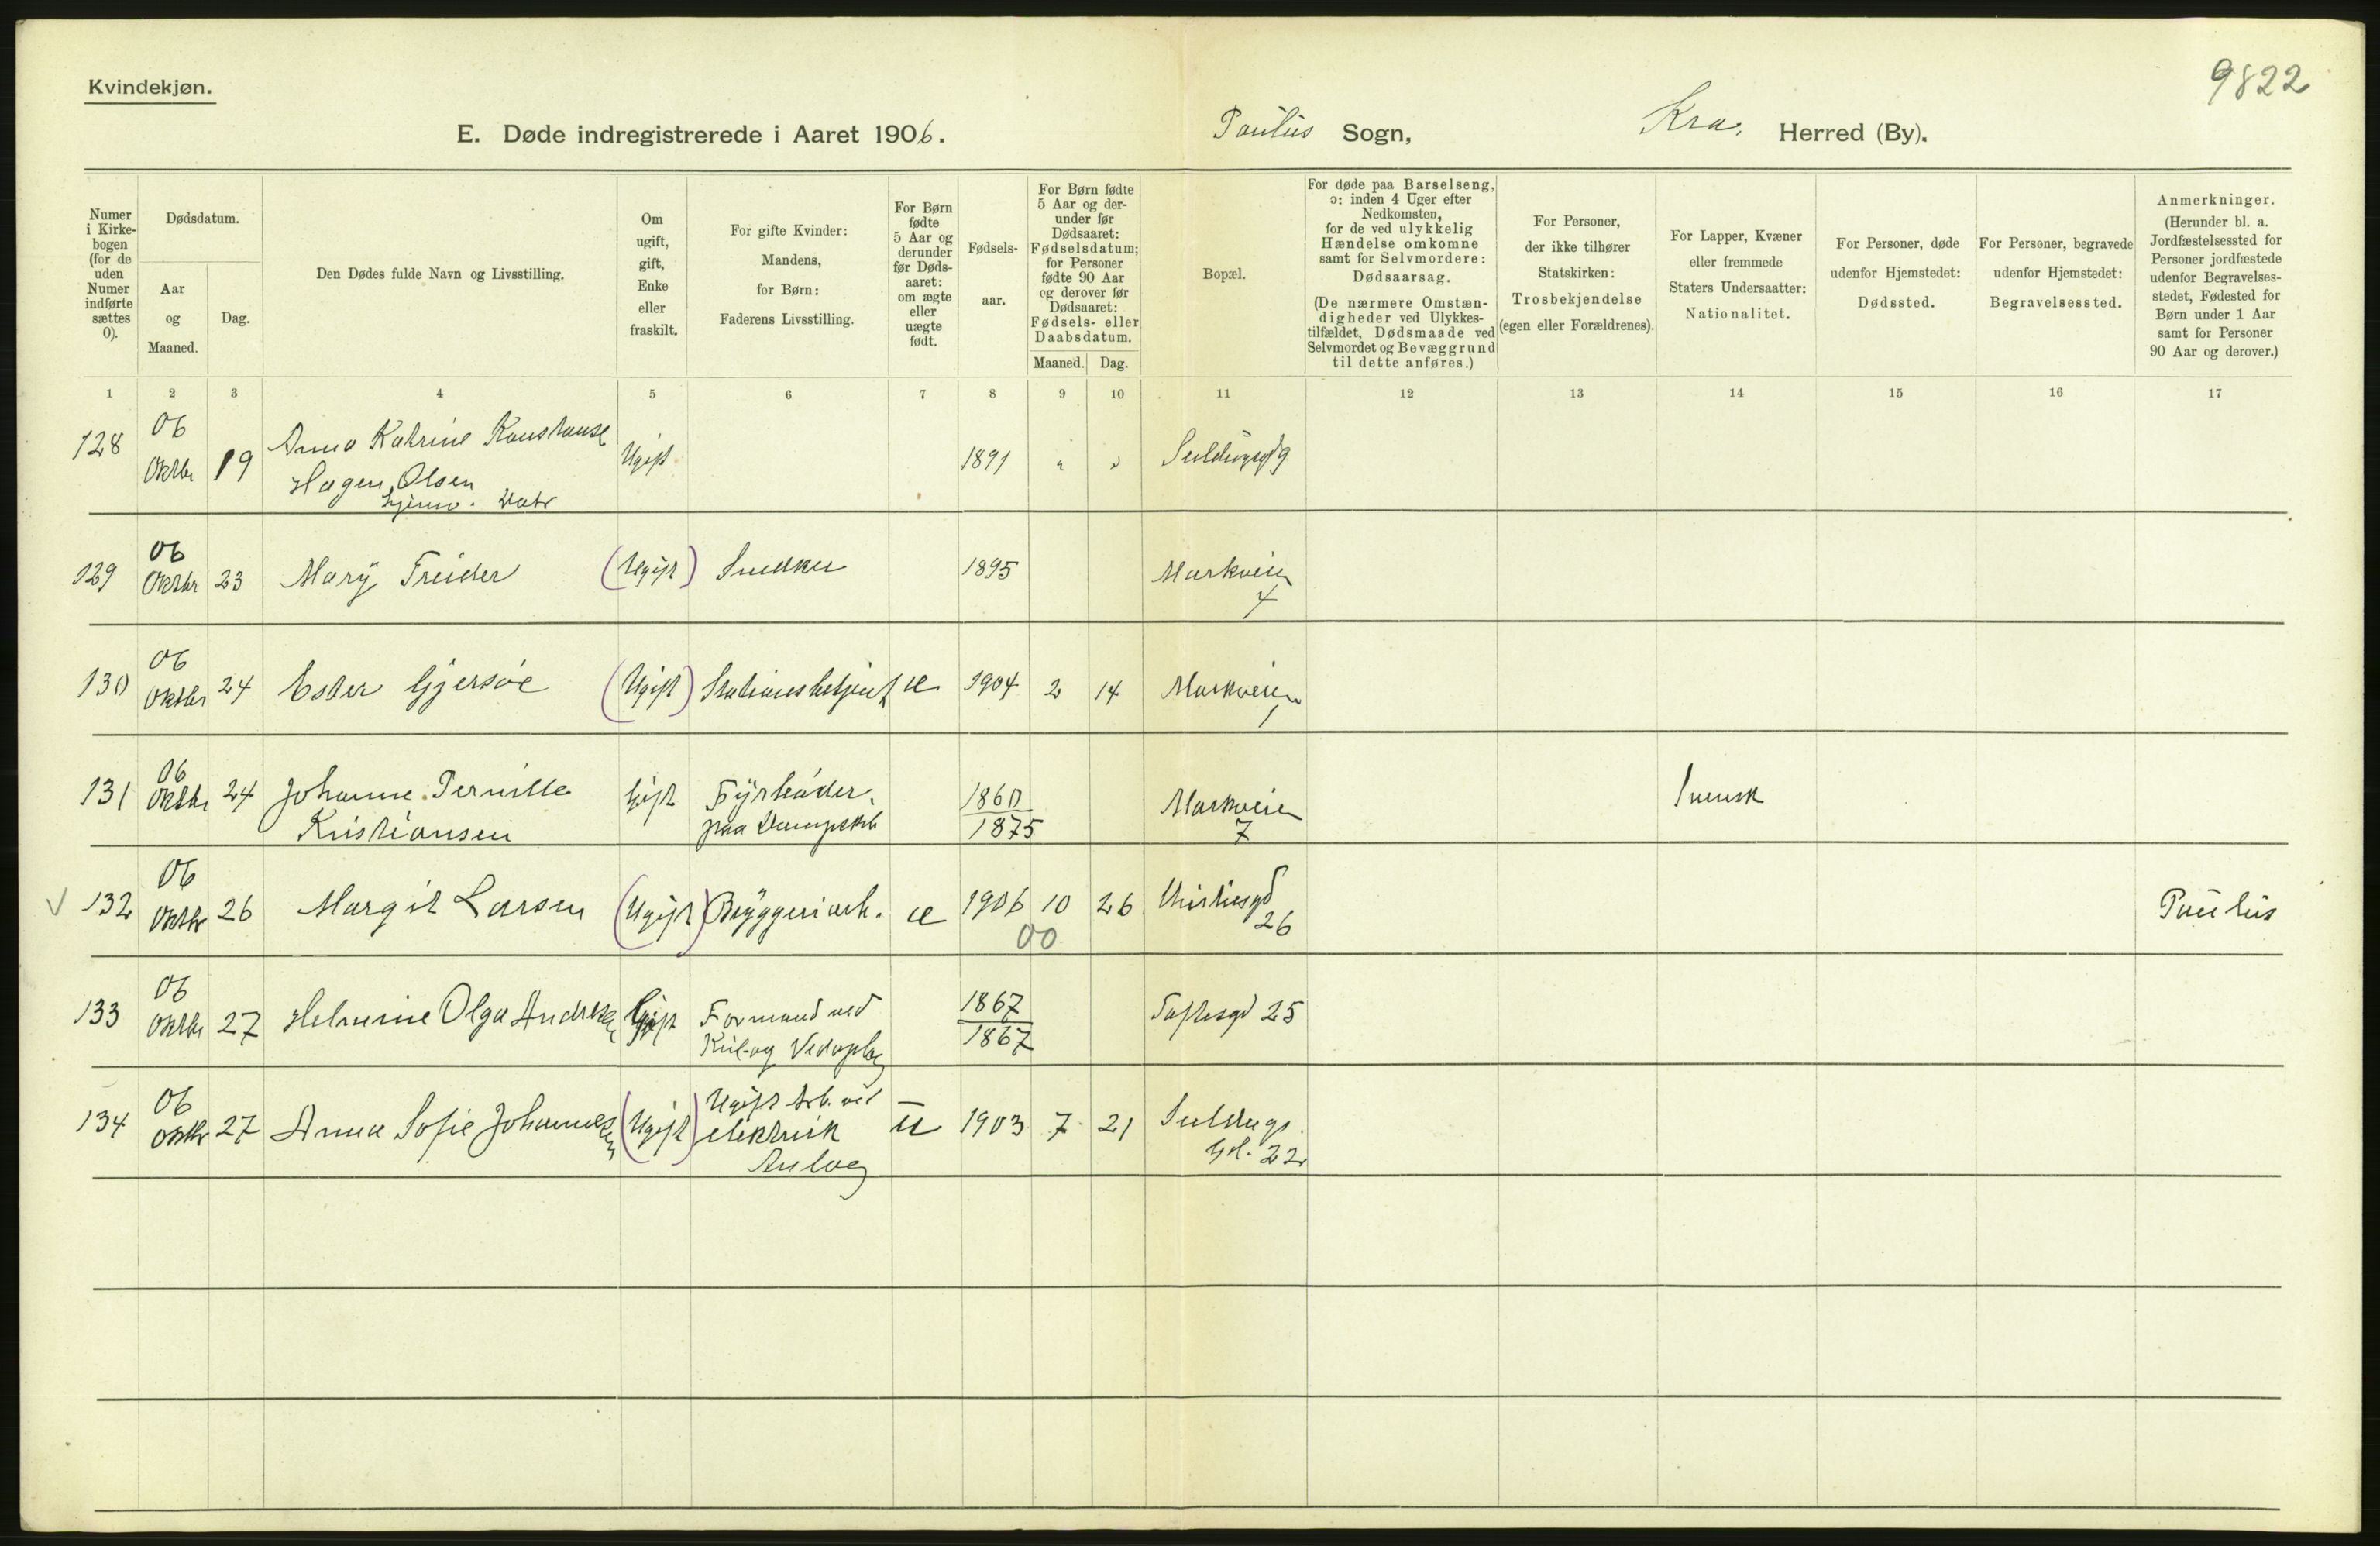 Kvindekjøn.
9822
E. Døde indregistrerede i Aaret 1906.
Paulus Sogn,
Kra. Herred (By).
Numer i Kirkebogen (for de uden Numer indførte sættes 0).
Dødsdatum.
Aar og Maaned.
Dag.
Den Dødes fulde Navn og Livsstilling.
Om ugift, gift, Enke eller fraskilt.
For gifte Kvinder: Mandens, for Børn: Faderens Livsstilling.
For Børn fødte 5 Aar og derunder før Døds-aaret: om ægte eller uægte født.
Fødsels-aar.
For Børn fødte 5 Aar og derunder før Dødsaaret: Fødselsdatum; for Personer fødte 90 Aar og derover før Dødsaaret: Fødsels- eller Daabsdatum.
Maaned. Dag.
Bopæl.
For døde paa Barselseng, ɔ: inden 4 Uger efter Nedkomsten, for de ved ulykkelig Hændelse omkomne samt for Selvmordere: Dødsaarsag.
(De nærmere Omstændigheder ved Ulykkestilfældet, Dødsmaade ved Selvmordet og Bevæggrund til dette anføres.)
For Personer, der ikke tilhører Statskirken: Trosbekjendelse (egen eller Forældrenes).
For Lapper, Kvæner eller fremmede Staters Undersaatter: Nationalitet.
For Personer, døde udenfor Hjemstedet: Dødssted.
For Personer, begravede udenfor Hjemstedet: Begravelsessted.
Anmerkninger.
(Herunder bl. a. Jordfæstelsessted for Personer jordfæstede udenfor Begravelsesstedet, Fødested for Børn under 1 Aar samt for Personer 90 Aar og derover.)
1 2 3 4 5 6 7 8 9 10 11 12 13 14 15 16 17
128 06 Oktbr 19 Anna Katrine Konstanse Hagen Olsen hjemv. Datr Ugift 1891 " "
129 06 Oktbr 23 Mary (Ugift) Snedker 1895 Markveien 4
130 06 Oktbr 24 Ester Gjersøe (Ugift) Stationsbetjent æ 1904 2 14 Markveien 1
131 06 Oktbr 24 Johanne Pernille Kristiansen Gift Fyrbøder paa Dampskib 1860 1875 Markveien 7 Svensk
132 06 Oktbr 26 Margit Larsen (Ugift) Bryggeriarb. æ 1906 10 26 00 26 Paulus
133 06 Oktbr 27 Helmine Olga Gift Formand ved Kul-og Vedoplag 1867 1867 Toftesgd 25
134 06 Oktbr 27 Anna Sofie Johannesen (Ugift) Ugift Arb. ved elektrisk Anlæg u 1903 7 21 22